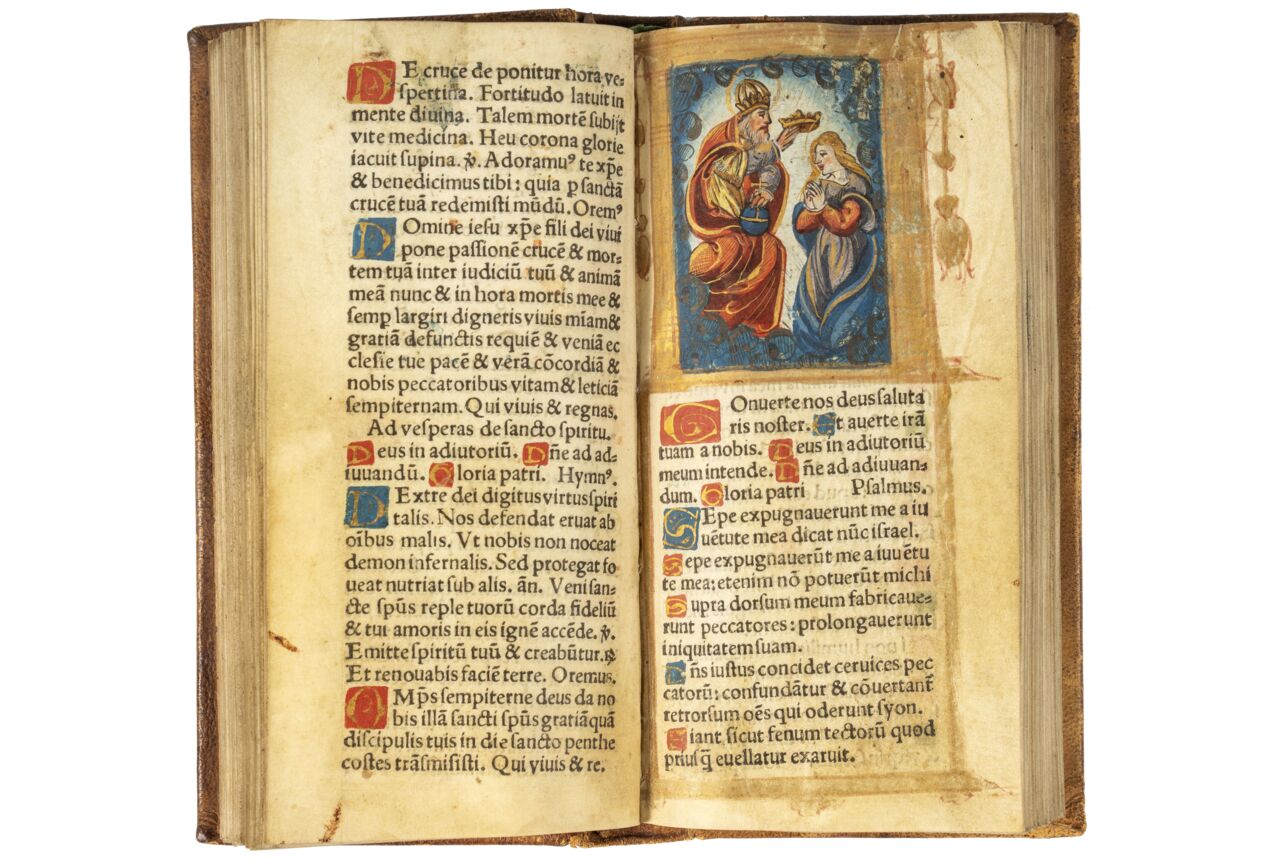 DE cruce de ponitur hora ve=
ſpertina. Fortitudo latuit in
mente diuina. Talem mortē ſubijt
vite medicina. Heu corona glorie
iacuit ſupina. ꝟ. Adoramuꝰ te xp̄e
& benedicimus tibi: quia ꝑ ſanctā
crucē tuā redemiſti mūdū. Oremꝰ
DOmine ieſu xp̄e fili dei viui
pone paſſionē crucē & mor=
tem tuā inter iudiciū tuū & animā
meā nunc & in hora mortis mee &
ſemp largiri digneris viuis mīam &
gratiā defunctis requiē & veniā ec
cleſie tue pacē & verā cōcordiā &
nobis peccatoribus vitam & leticiā
ſempiternam. Qui viuis & regnas.
Ad veſperas de ſancto ſpiritu.
Deus in adiutoriū. Dn̄e ad ad=
iuuandū. Gloria patri. Hymnꝰ.
DExtre dei digitus virtus ſpiri
talis. Nos defendat eruat ab
oībus malis. Vt nobis non noceat
demon infernalis. Sed protegat fo
ueat nutriat ſub alis. ān. Veni ſan=
cte ſpūs reple tuorū corda fideliū
& tui amoris in eis ignē accēde. ꝟ.
Emitte ſpiritū tuū & creabūtur. ꝶ
Et renouabis faciē terre. Oremus.
OMp̄s ſempiterne deus da no
bis illā ſancti ſpūs gratiā quā
diſcipulis tuis in die ſancto penthe
coſtes trāſmiſiſti. Qui viuis & re.
COnuerte nos deus ſaluta
ris noſter. Et auerte irā
tuam a nobis. Deus in adiutoriū
meum intende. Dn̄e ad adiuuan=
dum. Gloria patri Pſalmus.
SEpe expugnauerunt me a iu
uētute mea dicat nūc iſrael.
Sepe expugnauerūt me a iuuētu
te mea: etenim nō potuerūt michi
Supra dorſum meum fabricaue=
runt peccatores: prolongauerunt
iniquitatem ſuam.
Dn̄s iuſtus concidet ceruices pec
catorū: confundātur & cōuertant̄
retrorſum oēs qui oderunt ſyon.
Fiant ſicut fenum tectorū quod
priuſq̄ euellatur exaruit.